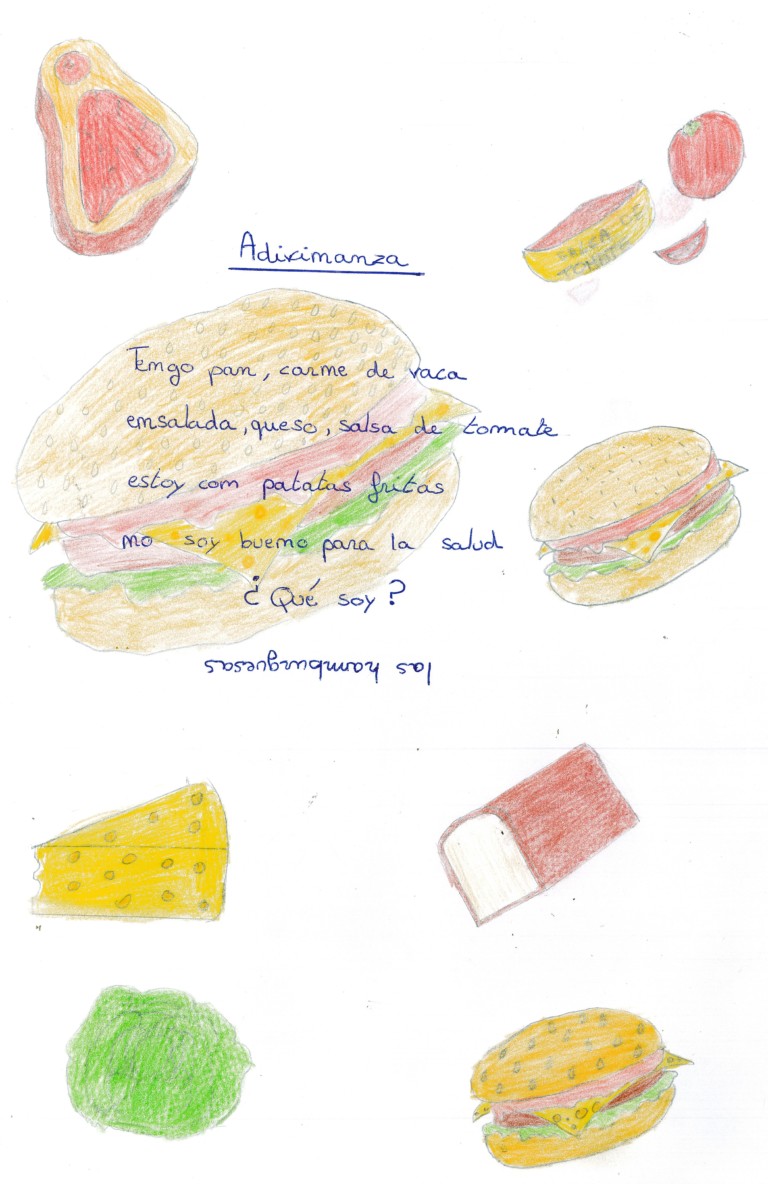 Adivinanza
Tengo pan, carne de vaca
ensalada, queso, salsa de tomate
estoy con patatas fritas
no soy bueno para la salud
¿Qué soy?
las hamburguesas